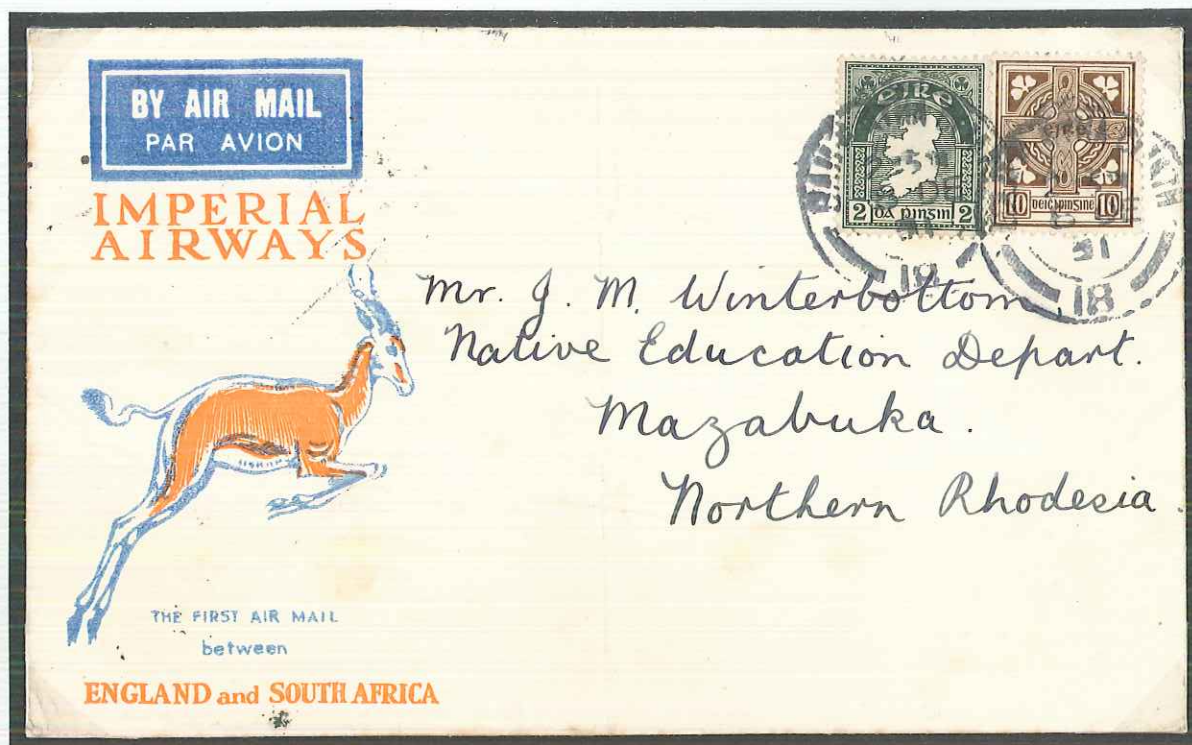 BY AIR MAIL
PAR AVION
IMPERIAL
AIRWAYS
ÉIRE
2 DÁ PINGIN 2
10 DEIĊ PINGINE 10
DE
31
18
DE
31
18
Mr. J. M. Winterbottom
Native Education Depart.
Mazabuka.
Northern Rhodesia.
THE FIRST AIR MAIL
between
ENGLAND and SOUTH AFRICA